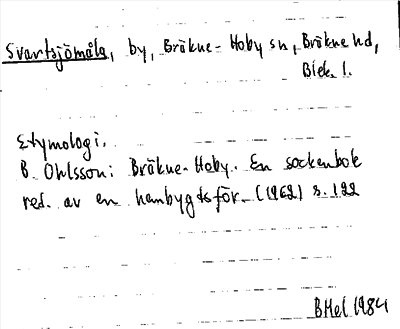 Svartsjömåla, by, Bräkne-Hoby sn, Bräkne hd,
Blek. l.
Etymologi.
B. Ohlsson: Bräkne-Hoby. En sockenbok
red. av en hembygdsför. (1962) s. 122
BHel 1984